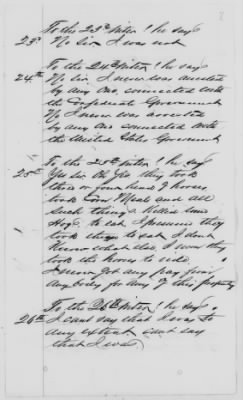 To the 23d Inter! he says
23d No Sir I was not
To the 24th Inter! he says
24th No Sir I never was arrested
by any one connected with
the Confederate Government
No I never was arrested
by any one connected with
the United States Goverment
To the 25th Inter! he says
25th Yes Sir Oh Yes they took
three or four head of horses
took Corn Meal and all
such things & killed some
Hogs to eat I presume they
took things to eat, I don't
Know what else I seen they
took the horses to ride.
I never got any pay from
any body for any of this property
To the 26th Inter! he says
26th I cant say that I was to
any extent cant say
that I was